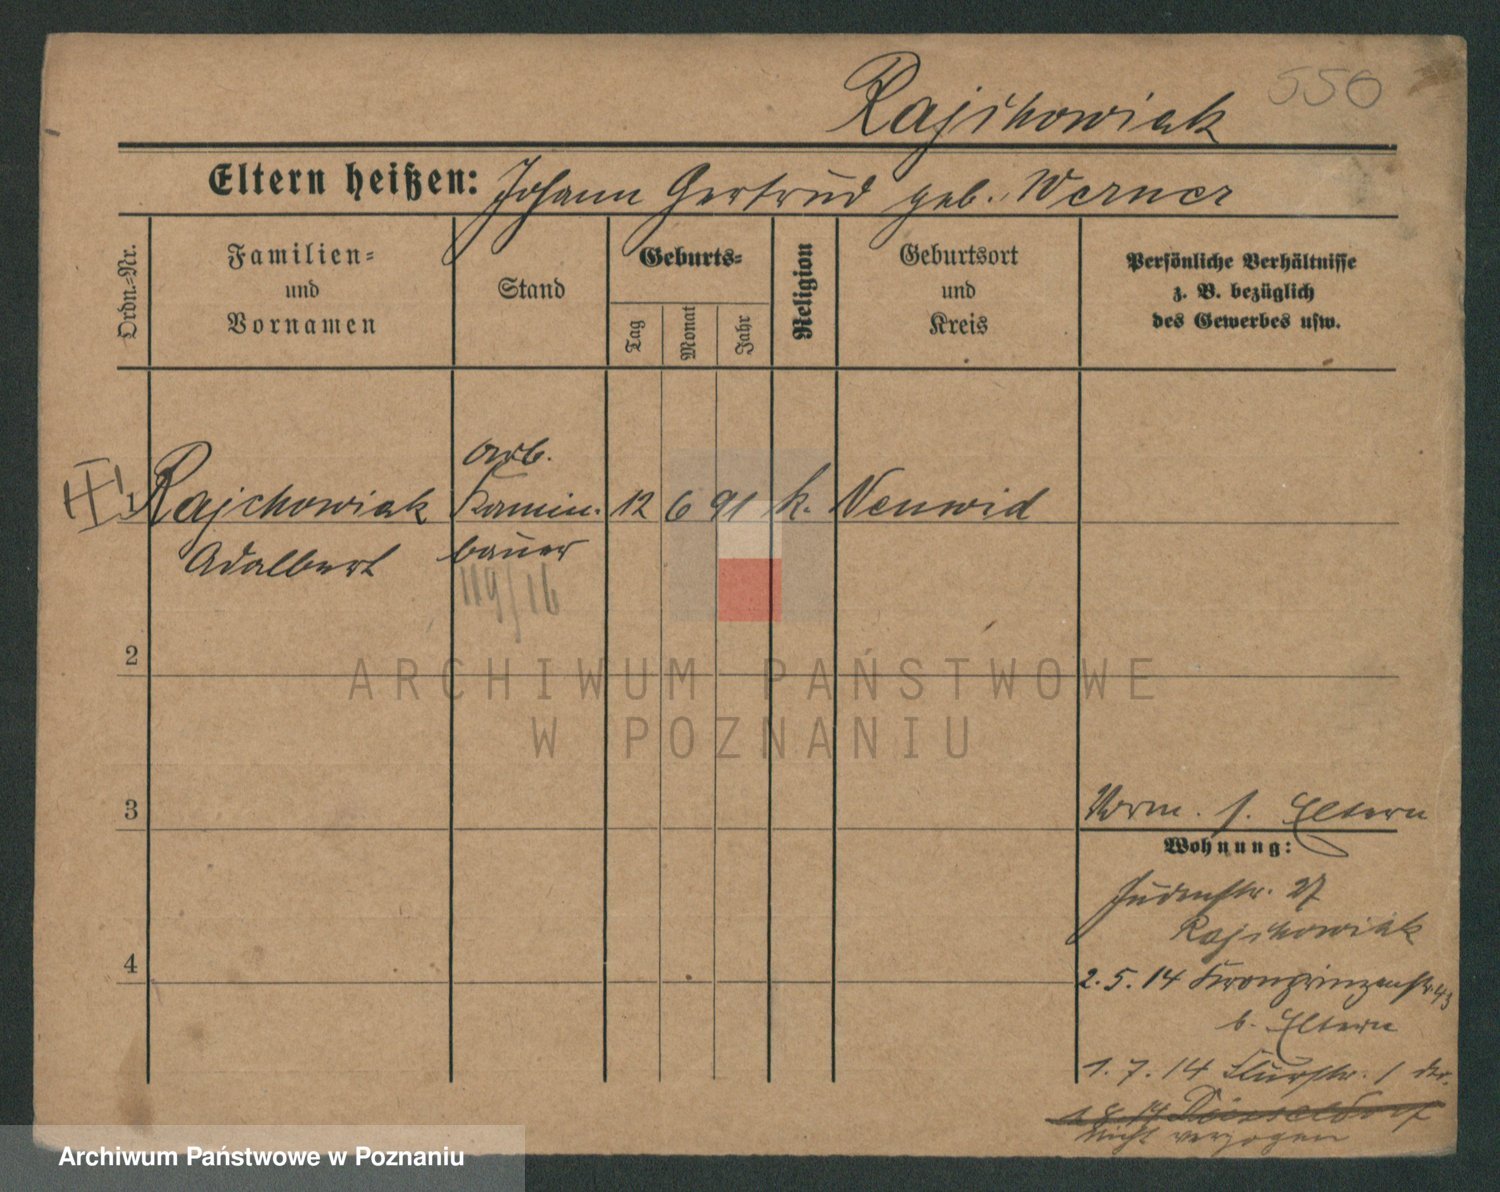 550
Rajchowiak
Eltern heißen: Johann Gertrud geb. Werner
Ordn.-Nr.
Familien-
und
Vornamen
Stand
Geburts-
Tag
Monat
Jahr
Religion
Geburtsort
und
Kreis
Persönliche Verhältnisse
z. B. bezüglich
des Gewerbes usw.
arb.
Rajchowiak Kamin- 12 6 91 k. Neuwid
Adalbert bauer
119/16
2
3
4
Verm. s. Eltern
Wohnung:
Judenstr. 27
Rajchowiak
2.5.14 Kronprinzenstr. 43
b. Eltern
1.7.14 Flurstr. 1
Düsseldorf
nicht verzogen
ARCHIWUM PAŃSTWOWE
W POZNANIU
Archiwum Państwowe w Poznaniu